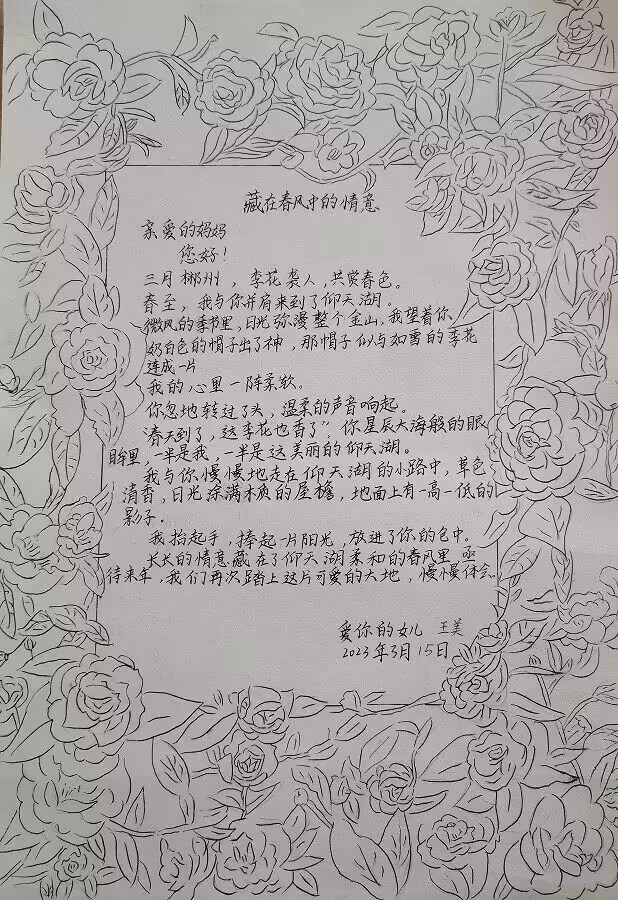 藏在春风中的情意
亲爱的妈妈
您好！
三月郴州，李花袭人，共赏春色。
春至，我与你并肩来到了仰天湖。
微风的季节里，日光弥漫整个金山，我望着你、
奶白色的帽子出了神，那帽子似与如雪的李花
连成一片
我的心里一阵柔软。
你忽地转过了头，温柔的声音响起。
春天到了，这李花也香了”你星辰大海般的眼
眸里，一半是我，一半是这美丽的仰天湖。
我与你慢慢地走在仰天湖的小路中，草色
清香，日光涂满木质的屋檐，地面上有一高一低的
影子．
我抬起手，捧起一片阳光，放进了你的包中。
长长的情意藏在了仰天湖柔和的春风里
待来年，我们再次踏上这片可爱的大地，慢慢体会.
爱你的女儿 王美
2023年3月15日